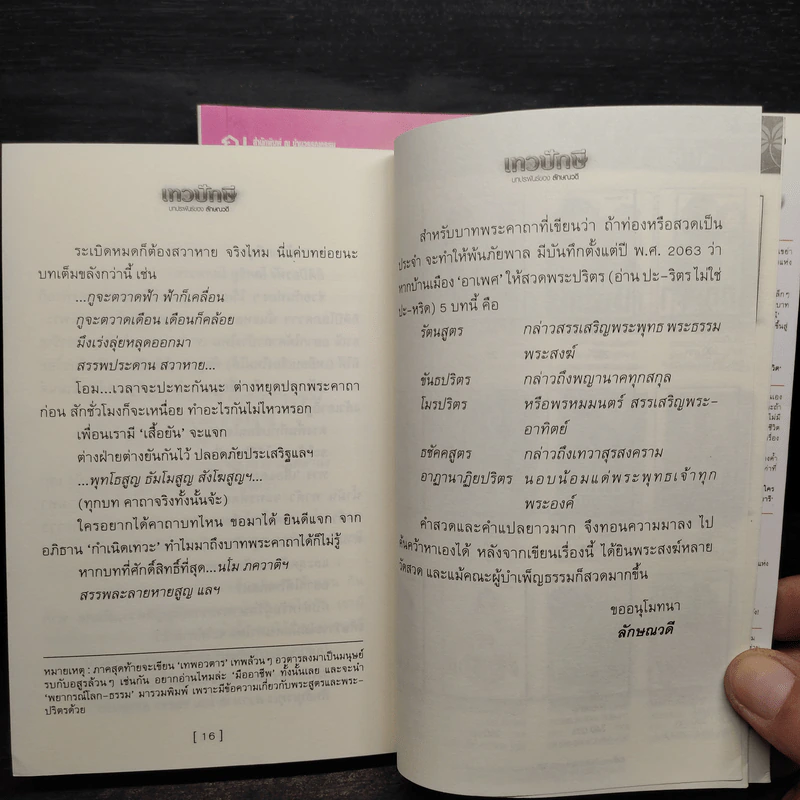 เทวปักษี
บทประพันธ์ของ ลักษณวดี
ระเบิดหมดก็ต้องสวาหาย จริงไหม นี่แค่บทย่อยนะ
บทเต็มขลังกว่านี้ เช่น
...กูจะตวาดฟ้า ฟ้าก็เคลื่อน
กูจะตวาดเดือน เดือนก็คล้อย
มึงเร่งลุ่ยหลุดออกมา
สรรพประดาน สวาหาย...
โอม...เวลาจะปะทะกันนะ ต่างหยุดปลุกพระคาถา
ก่อน สักชั่วโมงก็จะเหนื่อย ทำอะไรกันไม่ไหวหรอก
เพื่อนเรามี ‘เสื้อยัน’ จะแจก
ต่างฝ่ายต่างยันกันไว้ ปลอดภัยประเสริฐแลฯ
...พุทโธสูญ ธัมโมสูญ สังโฆสูญฯ...
(ทุกบท คาถาจริงทั้งนั้นจ้ะ)
ใครอยากได้คาถาบทไหน ขอมาได้ ยินดีแจก จาก
อภิธาน ‘กำเนิดเทวะ’ ทำไมมาถึงบทพระคาถาได้ก็ไม่รู้
หากบทที่ศักดิ์สิทธิ์ที่สุด...นโม ภควาติฯ
สรรพละลายหายสูญ แลฯ
หมายเหตุ : ภาคสุดท้ายจะเขียน ‘เทพอวตาร’ เทพล้วนๆ อวตารลงมาเป็นมนุษย์
รบกับอสูรล้วนๆ เช่นกัน อยากอ่านไหมล่ะ ‘มืออาชีพ’ ทั้งนั้นเลย และจะนำ
‘พยากรณ์โลก-ธรรม’ มารวมพิมพ์ เพราะมีข้อความเกี่ยวกับพระสูตรและพระ-
ปริตรด้วย
[ 16 ]
เทวปักษี
บทประพันธ์ของ ลักษณวดี
สำหรับบาทพระคาถาที่เขียนว่า ถ้าท่องหรือสวดเป็น
ประจำ จะทำให้พ้นภัยพาล มีบันทึกตั้งแต่ปี พ.ศ. 2063 ว่า
หากบ้านเมือง ‘อาเพศ’ ให้สวดพระปริตร (อ่าน ปะ-ริตร ไม่ใช่
ปะ-หริด) 5 บทนี้ คือ
รัตนสูตร กล่าวสรรเสริญพระพุทธ พระธรรม
พระสงฆ์
ขันธปริตร กล่าวถึงพญานาคทุกสกุล
โมรปริตร หรือพรหมมนตร์ สรรเสริญพระ-
อาทิตย์
ธชัคคสูตร กล่าวถึงเทวาสุรสงคราม
อาฏานาฏิยปริตร นอบน้อมแด่พระพุทธเจ้าทุก
พระองค์
คำสวดและคำแปลยาวมาก จึงทอนความมาลง ไป
ค้นคว้าหาเองได้ หลังจากเขียนเรื่องนี้ ได้ยินพระสงฆ์หลาย
วัดสวด และแม้คณะผู้บำเพ็ญธรรมก็สวดมากขึ้น
ขออนุโมทนา
ลักษณวดี